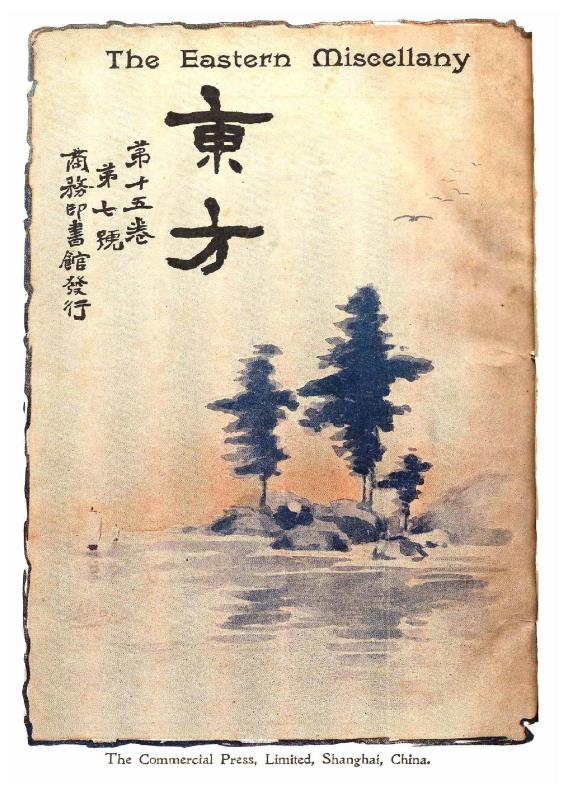 The Eastern Miscellany
東方
第十五卷
第七號
商務印書館發行
The Commercial Press, Limited, Shanghai, China.